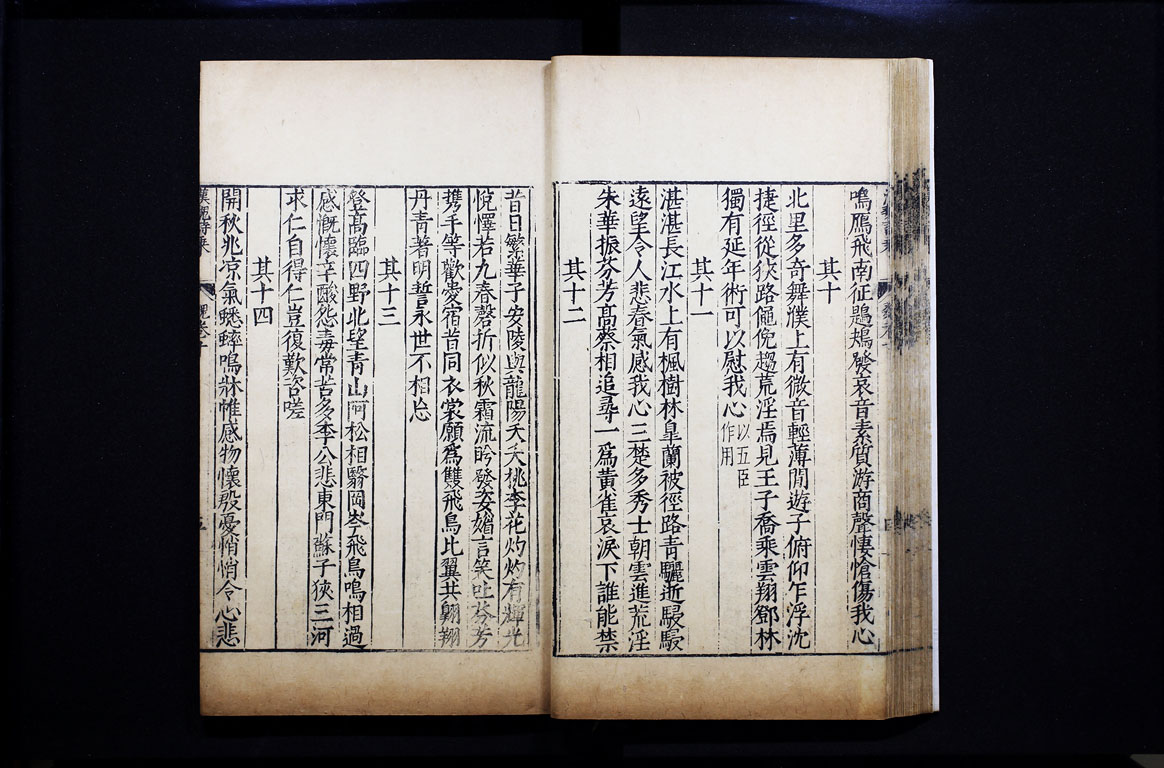 鳴鴈飛南征鶗鴂發哀音素質游商聲悽愴傷我心
其十
北里多奇舞濮上有微音輕薄閒遊子俯仰乍浮沈
捷徑從狹路僶俛趨荒淫焉見王子喬乘雲翔鄧林
獨有延年術可以慰我心
以五臣
作用
其十一
湛湛長江水上有楓樹林皐蘭被徑路青驪逝駸駸
遠望令人悲春氣感我心三楚多秀士朝雲進荒淫
朱華振芬芳高蔡相追尋一爲黃雀哀淚下誰能禁
其十二
昔日繁華子安陵與龍陽夭夭桃李花灼灼有輝光
悅懌若九春磬折似秋霜流盻發姿媚言笑吐芬芳
携手等歡愛宿昔同衣裳願爲雙飛鳥比翼共翺翔
丹青著明誓永世不相忘
其十三
登高臨四野北望青山阿松柏翳岡岑飛鳥鳴相過
感慨懷辛酸怨毒常苦多李公悲東門蘇子狹三河
求仁自得仁豈復歎咨嗟
其十四
開秋兆凉氣蟋蟀鳴牀帷感物懷殷憂悄悄令心悲
漢魏詩乘